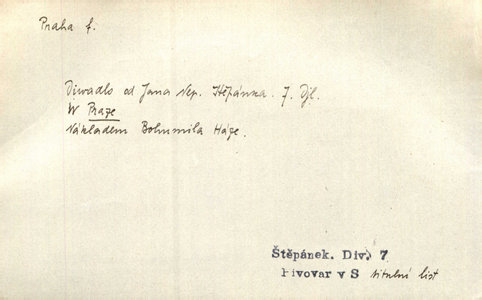 Praha f.
Diwadlo od Jana Nep. Štěpánka. 7. Djl.
W Praze
Nákladem Bohumila Háze.
Štěpánek. Div. 7
Pivovar v S titulní list